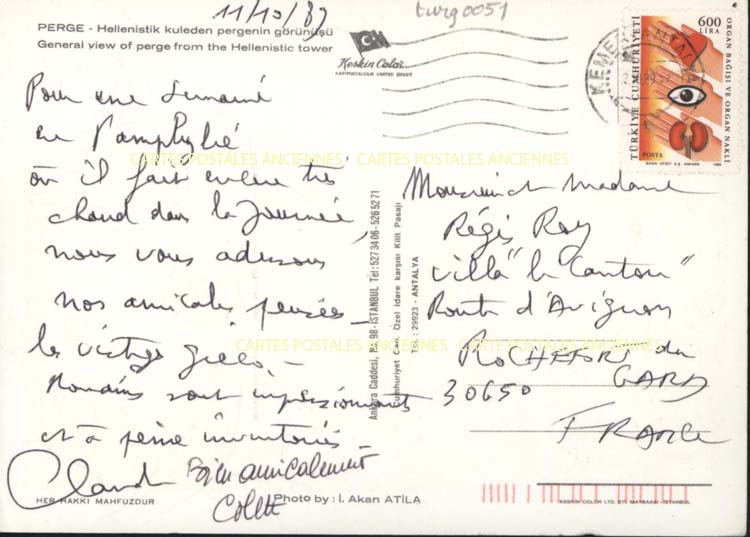 11/10/89
turg0051
PERGE - Hellenistik kuleden pergenin görünüşü
General view of perge from the Hellenistic tower
Keskin Color
KARTPOSTALCILIK LIMITED ŞIRKETI
KEMER ANTALYA
600
LIRA
TÜRKİYE CUMHURİYETİ
ORGAN BAĞIŞI VE ORGAN NAKLİ
POSTA
Pour une semaine
en Pamphylie
où il fait encore très
chaud dans la journée,
nous vous adressons
nos amicales pensées -
les vestiges gréco -
Romains sont impressionnants
et à peine inventoriés -
Claude
Bien amicalement
Colette
CARTES POSTALES ANCIENNES
CARTES POSTALES ANCIENNES
CARTES POSTALES ANCIENNES
CARTES POSTALES ANCIENNES
Ankara Caddesi, No. 98 - İSTANBUL Tel: 5273406 - 5265271
Cumhuriyet Cad. Özel İdare karşısı Kilit Pasajı
Tel.: 29923 - ANTALYA
Monsieur et Madame
Régis Roy
villa "le Cantou"
Route d'Avignon
ROCHEFORT du
GARD
30650
FRANCE
HER HAKKI MAHFUZDUR
Photo by: İ. Akan ATİLA
KESKİN COLOR LTD. ŞTİ. MATBAASI - İSTANBUL